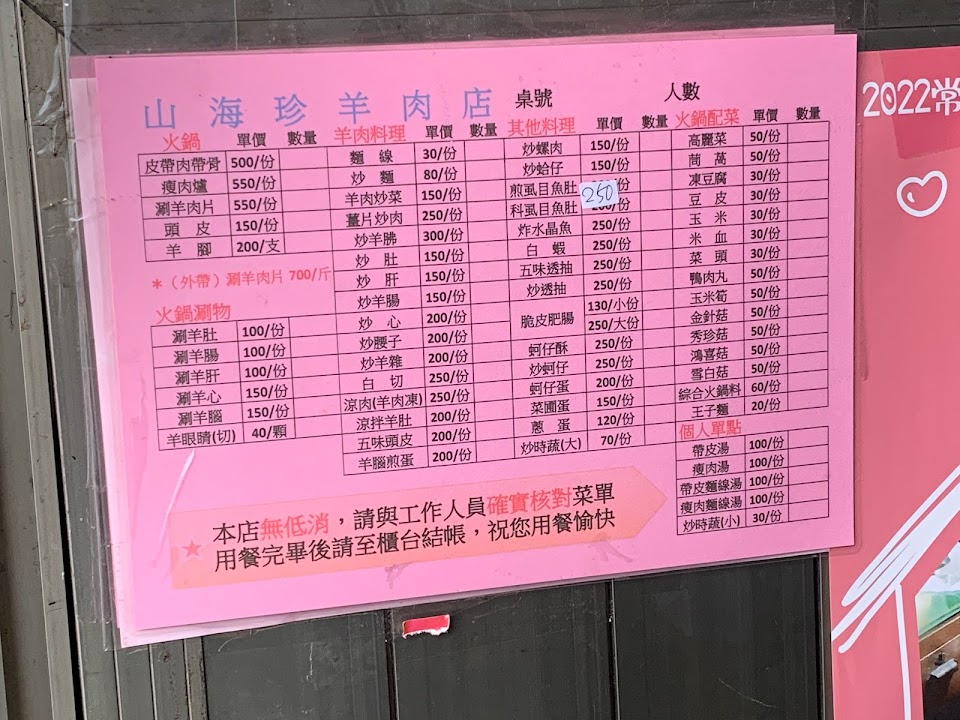 山海珍羊肉店 桌號 人數
火鍋 單價 數量
皮帶肉帶骨 500/份
瘦肉爐 550/份
涮羊肉片 550/份
頭皮 150/份
羊腳 200/支
*(外帶)涮羊肉片 700/斤
火鍋涮物
涮羊肚 100/份
涮羊腸 100/份
涮羊肝 100/份
涮羊心 150/份
涮羊腦 150/份
羊眼睛(切) 40/顆
羊肉料理 單價 數量
麵線 30/份
炒麵 80/份
羊肉炒菜 150/份
薑片炒肉 250/份
炒羊胇 300/份
炒肚 150/份
炒肝 150/份
炒羊腸 150/份
炒心 200/份
炒腰子 200/份
炒羊雜 200/份
白切 250/份
涼肉(羊肉凍) 250/份
涼拌羊肚 200/份
五味頭皮 200/份
羊腦煎蛋 200/份
其他料理 單價 數量
炒螺肉 150/份
炒蛤仔 150/份
煎虱目魚肚 250
科虱目魚肚 200/份
炸水晶魚 250/份
白蝦 250/份
五味透抽 250/份
炒透抽 250/份
脆皮肥腸 130/小份
250/大份
蚵仔酥 250/份
炒蚵仔 250/份
蚵仔蛋 200/份
菜圃蛋 150/份
蔥蛋 120/份
炒時蔬(大) 70/份
火鍋配菜 單價 數量
高麗菜 50/份
茼萵 50/份
凍豆腐 30/份
豆皮 30/份
玉米 30/份
米血 30/份
菜頭 30/份
鴨肉丸 50/份
玉米筍 50/份
金針菇 50/份
秀珍菇 50/份
鴻喜菇 50/份
雪白菇 50/份
綜合火鍋料 60/份
王子麵 20/份
個人單點
帶皮湯 100/份
瘦肉湯 100/份
帶皮麵線湯 100/份
瘦肉麵線湯 100/份
炒時蔬(小) 30/份
★ 本店無低消,請與工作人員確實核對菜單
用餐完畢後請至櫃台結帳,祝您用餐愉快
2022常